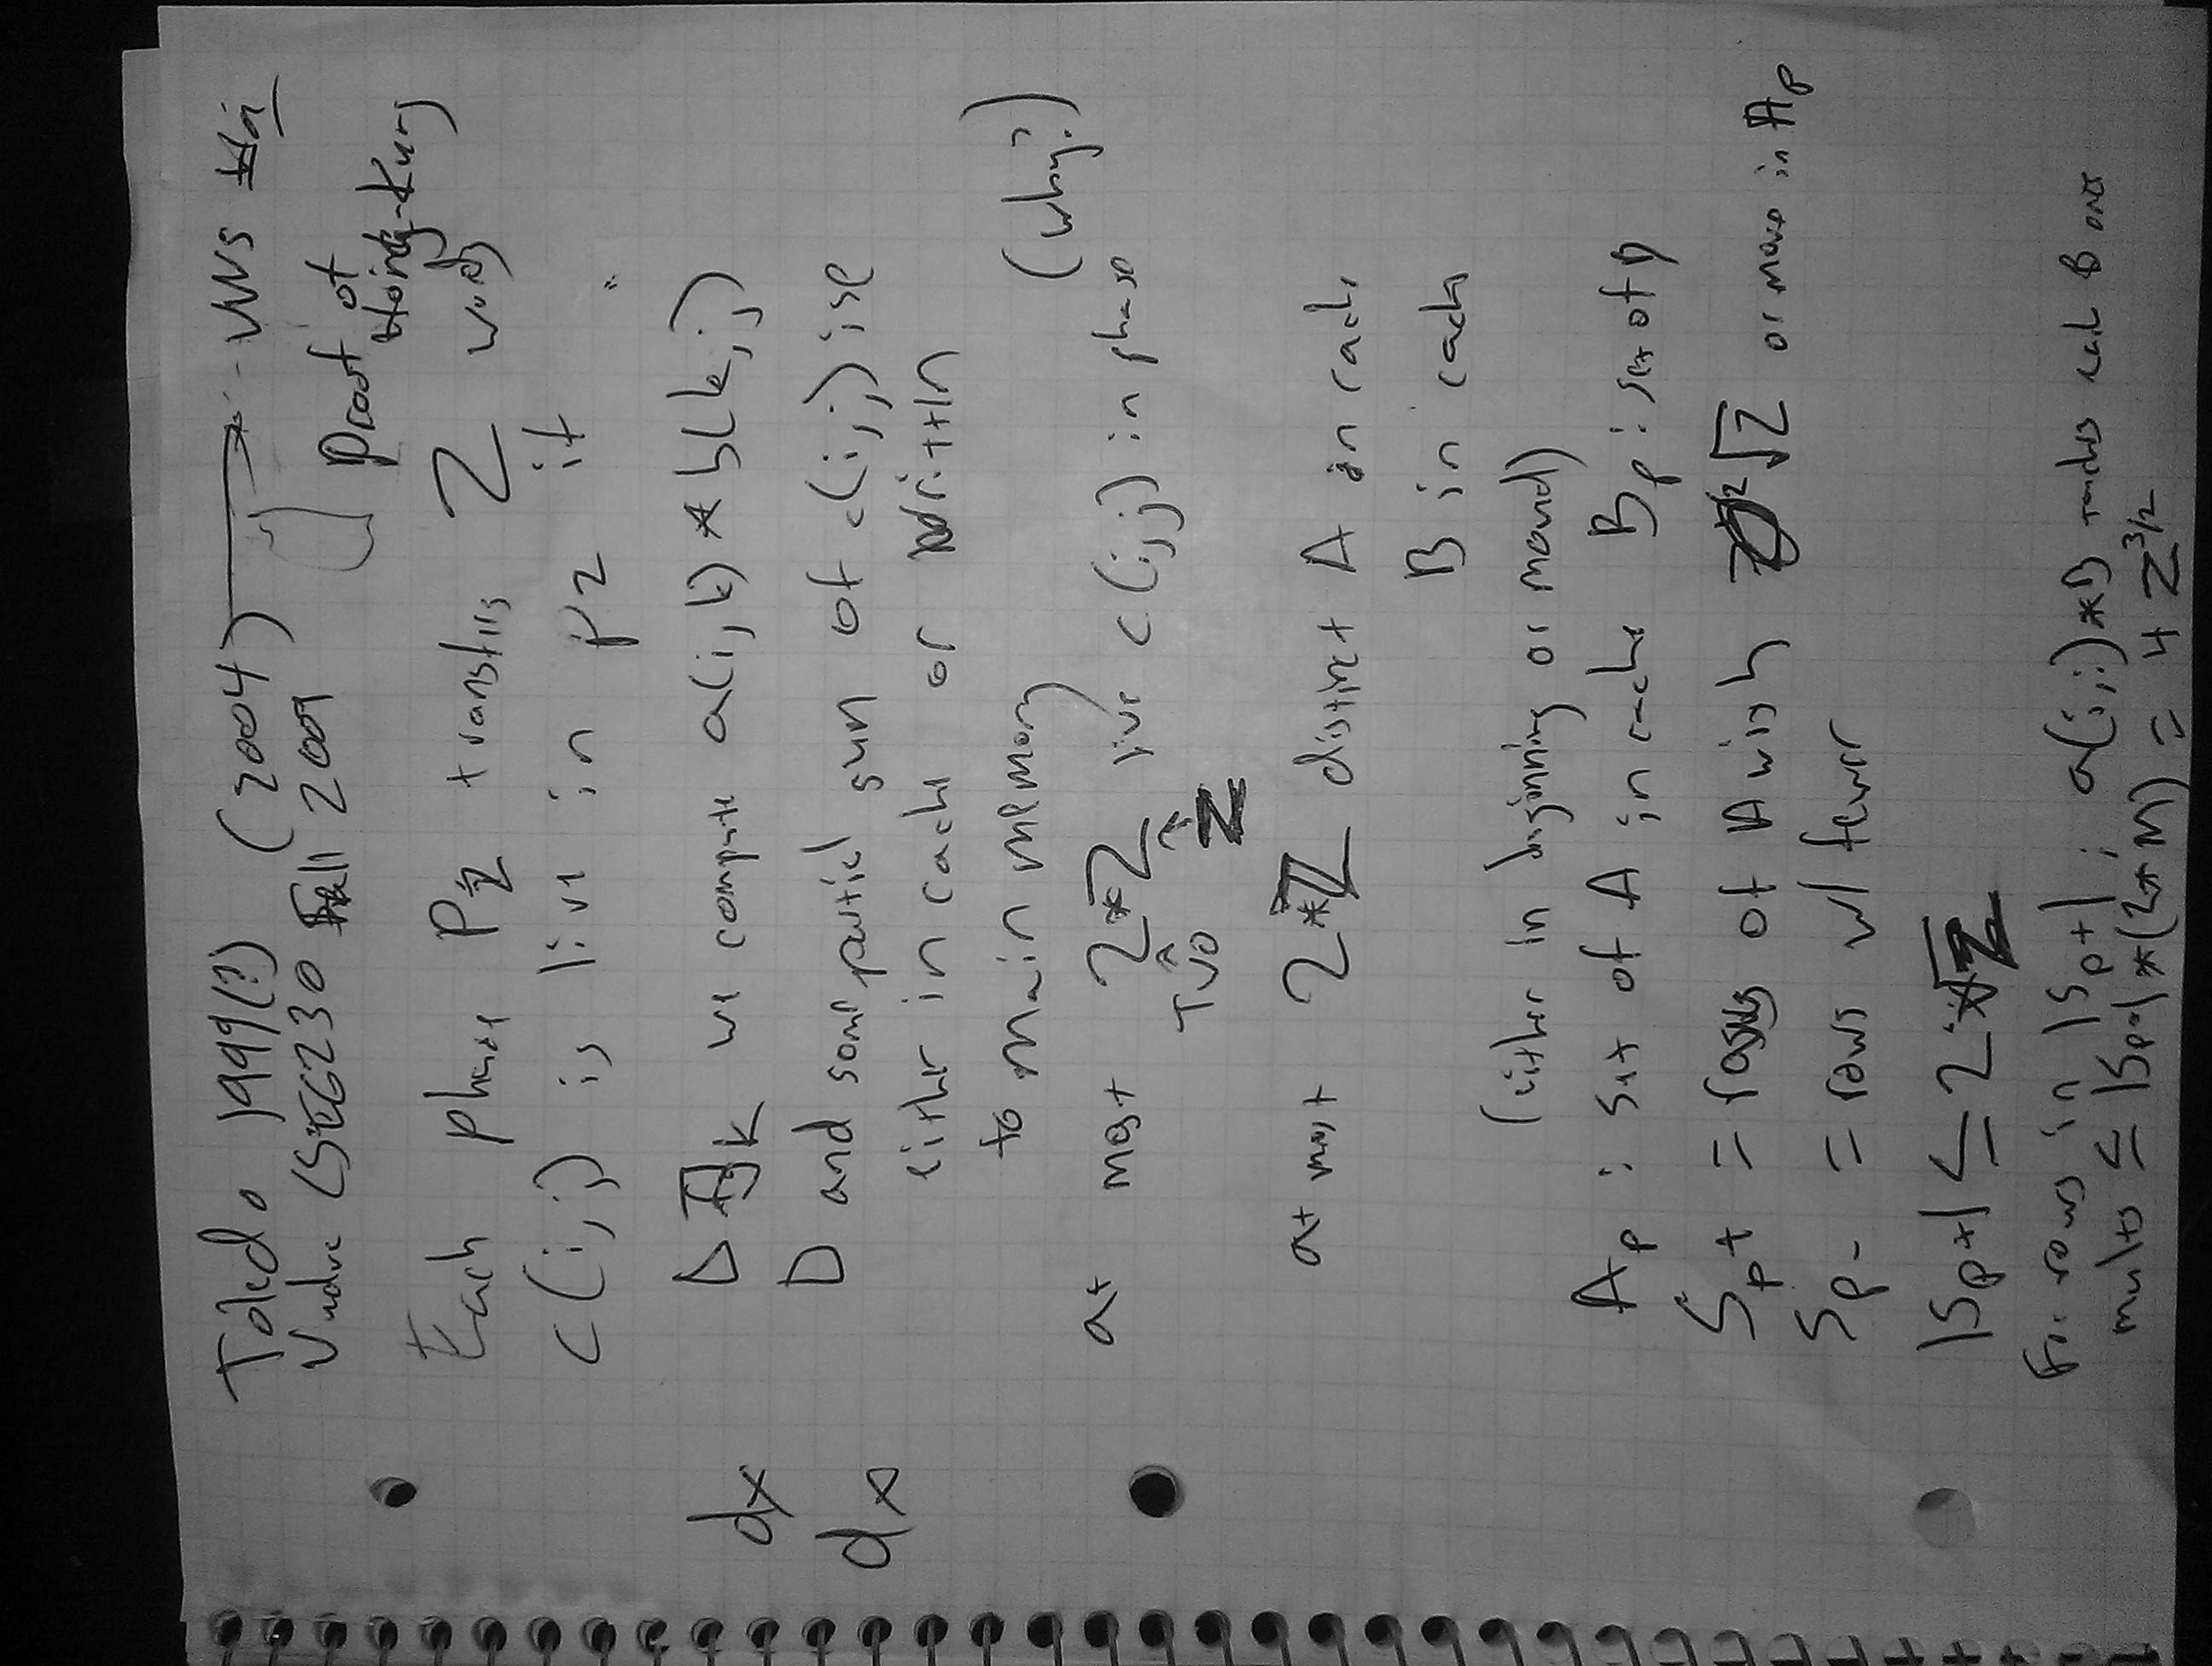 Toledo 1999(?) (2004)
Vuduc CSE6230 Fall 2009
Proof of
Hong-Kung
Each phase P transfers Z words
c(i,j) is live in P if
D k we compute a(i,k) * b(k,j)
D and some partial sum of c(i,j) is
either in cache or written
to main memory
(why?)
at most 2*Z live c(i,j) in phase
TWO Z
at most 2*Z distinct A in cache
B in cach
(either in beginning or moved)
Ap : set of A in cache Bp : set of B
Sp+ = rows of A with √Z or more in Ap
Sp- = rows w/ fewer
|Sp+| ≤ 2*√Z
For rows in |Sp+| ; a(i,j)*B touches each B once
mults ≤ |Sp+|*(Z+M) = 4 Z^3/2
dx
dx